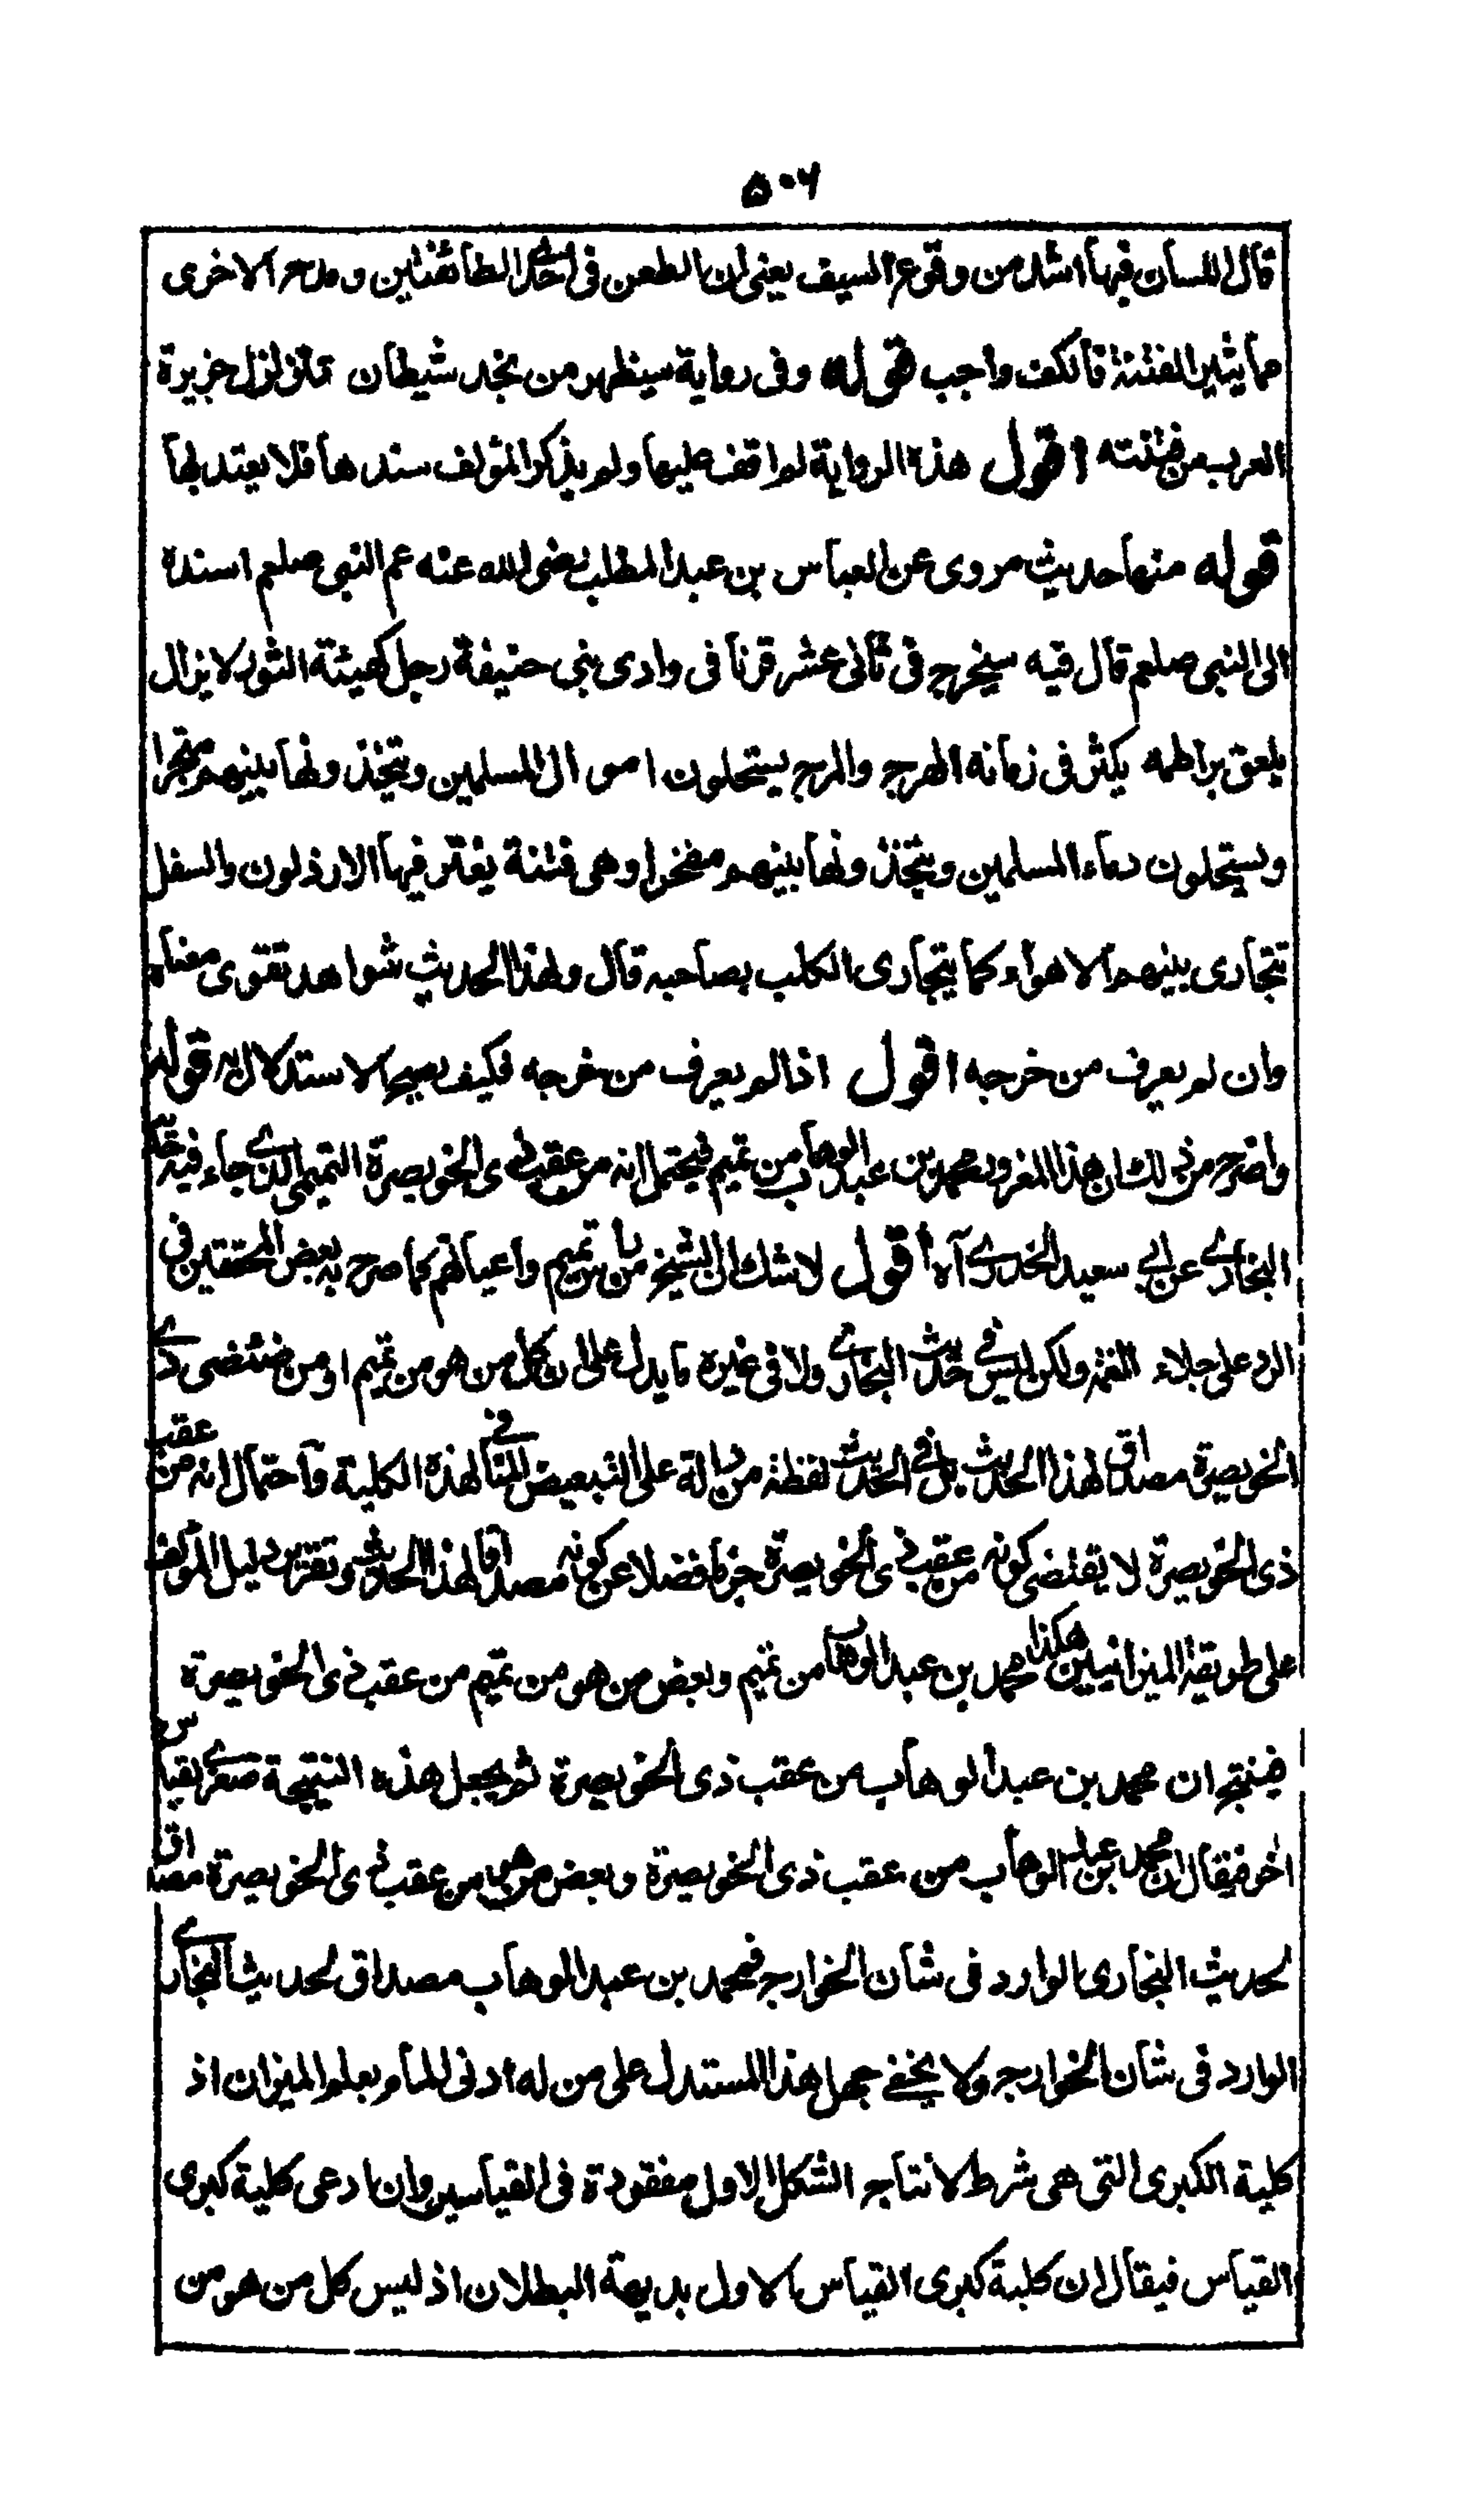 ٥٠٦
قال اللسان فيها اشد من وقوع السيف يعنى ان الطعن فى احدى الطائفتين ومدح الاخرى
مما يثير الفتنة فالكف واجب قوله وفى رواية سيظهر من نجد شيطان تتزلزل جزيرة
العرب من فتنته اقول هذه الرواية لم اقف عليها ولم يذكر المؤلف سندها فلا يعتد بها
قوله منها حديث مروى عن العباس بن عبد المطلب رضى الله عنه عم النبى صلعم اسنده
الى النبى صلعم قال فيه سيخرج فى ثانى عشر قرنا فى وادى بنى حنيفة رجل كهيئة الثور لا يزال
يلعق براطمه يكثر فى زمانه الهرج والمرج يستحلون اموال المسلمين ويتخذونها بينهم متجرا
ويستحلون دماء المسلمين ويتخذونها بينهم مفخرا وهى فتنة يعتز فيها الارذلون والسفل
تتجارى بينهم الاهواء كما يتجارى الكلب بصاحبه قال ولهذا الحديث شواهد تقوى معناه
وان لم يعرف من خرجه اقول اذا لم يعرف من خرجه فكيف يصح الاستدلال به قوله
واصرح من ذلك ان هذا المغرور محمد بن عبد الوهاب من تميم فيحتمل انه من عقب ذى الخويصرة التميمى الذى جاء فيه حديث
البخارى عن ابى سعيد الخدرى آه اقول لا شك ان الشيخ من بنى تميم واعيانهم كما صرح به بعض المحققين فى
الرد على جلاء الغمة ولكن ليس فى حديث البخارى ولا فى غيره ما يدل على ان كل من هو من تميم او من ضئضئ ذى
الخويصرة مصداق لهذا الحديث بل فى الحديث لفظة من دالة على التبعيض المنافى لهذه الكلية واحتمال انه من عقب
ذى الخويصرة لا يقتضى كونه من عقب ذى الخويصرة جزما فضلا عن كونه مصداقا لهذا الحديث وتقرير دليل المؤلف
على طريقة الميزانيين هكذا محمد بن عبد الوهاب من تميم وبعض من هو من تميم من عقب ذى الخويصرة
فينتج ان محمد بن عبد الوهاب من عقب ذى الخويصرة ثم يجعل هذه النتيجة صغرى لقياس
اخر فيقال ان محمد بن عبد الوهاب من عقب ذى الخويصرة وبعض من هو من عقب ذى الخويصرة مصداق
لحديث البخارى الوارد فى شان الخوارج فمحمد بن عبد الوهاب مصداق لحديث البخارى
الوارد فى شان الخوارج ولا يخفى جهل هذا المستدل على من له ادنى المام بعلم الميزان اذ
كلية الكبرى التى هى شرط لانتاج الشكل الاول مفقودة فى القياسين وان ادعى كلية كبرى
القياس فيقال ان كلية كبرى القياس الاول بديهة البطلان اذ ليس كل من هو من